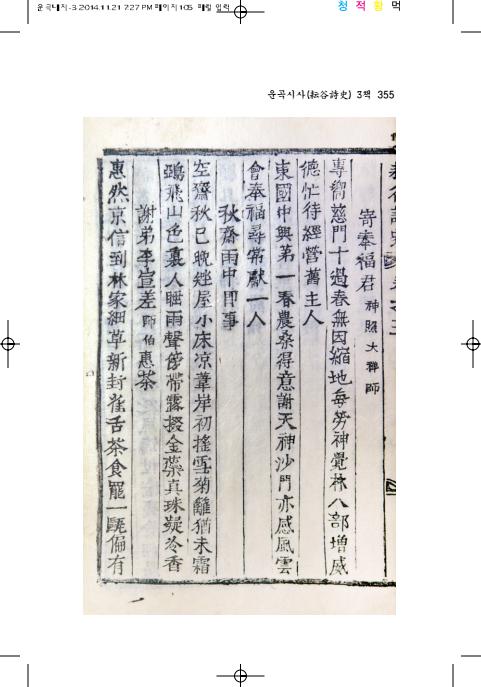 운곡시사-3 2014.11.21 7:27 PM 페이지105
청 적 황 먹
운곡시사(耘谷詩史) 3책 355
寄奉福君 神照大禪師
專嚮慈門十過春無因縮地每勞神覺林八部增威
德忙待經營舊主人
東國中興第一春農桑得意謝天神沙門亦感風雲
會奉福尋常獻一人
秋齋雨中卽事
空齋秋已晩矮屋小床凉葦岸初搖雪菊籬猶未霜
鴉飛山色裏人睡雨聲傍帶露掇金蘂眞珠凝冷香
謝弟李宣差 師伯 惠茶
惠然京信到林家細草新封雀舌茶食罷一甌偏有